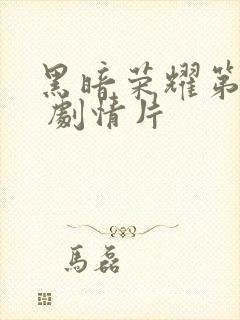 黑暗荣耀第
劇情片
馬磊